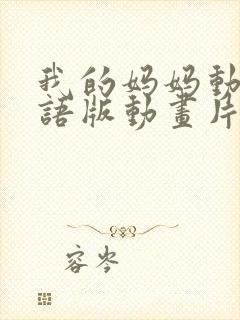 我的妈妈動
語版動畫片
容岑